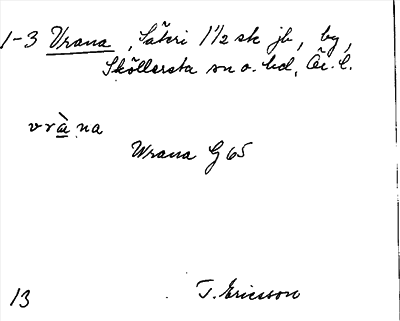 1-3 Vrana, Säteri 1 1/2 sk jb, by,
Sköllersta sn o. hd, Ör. l.
vràna
Wrana G 65
13 T. Ericsson